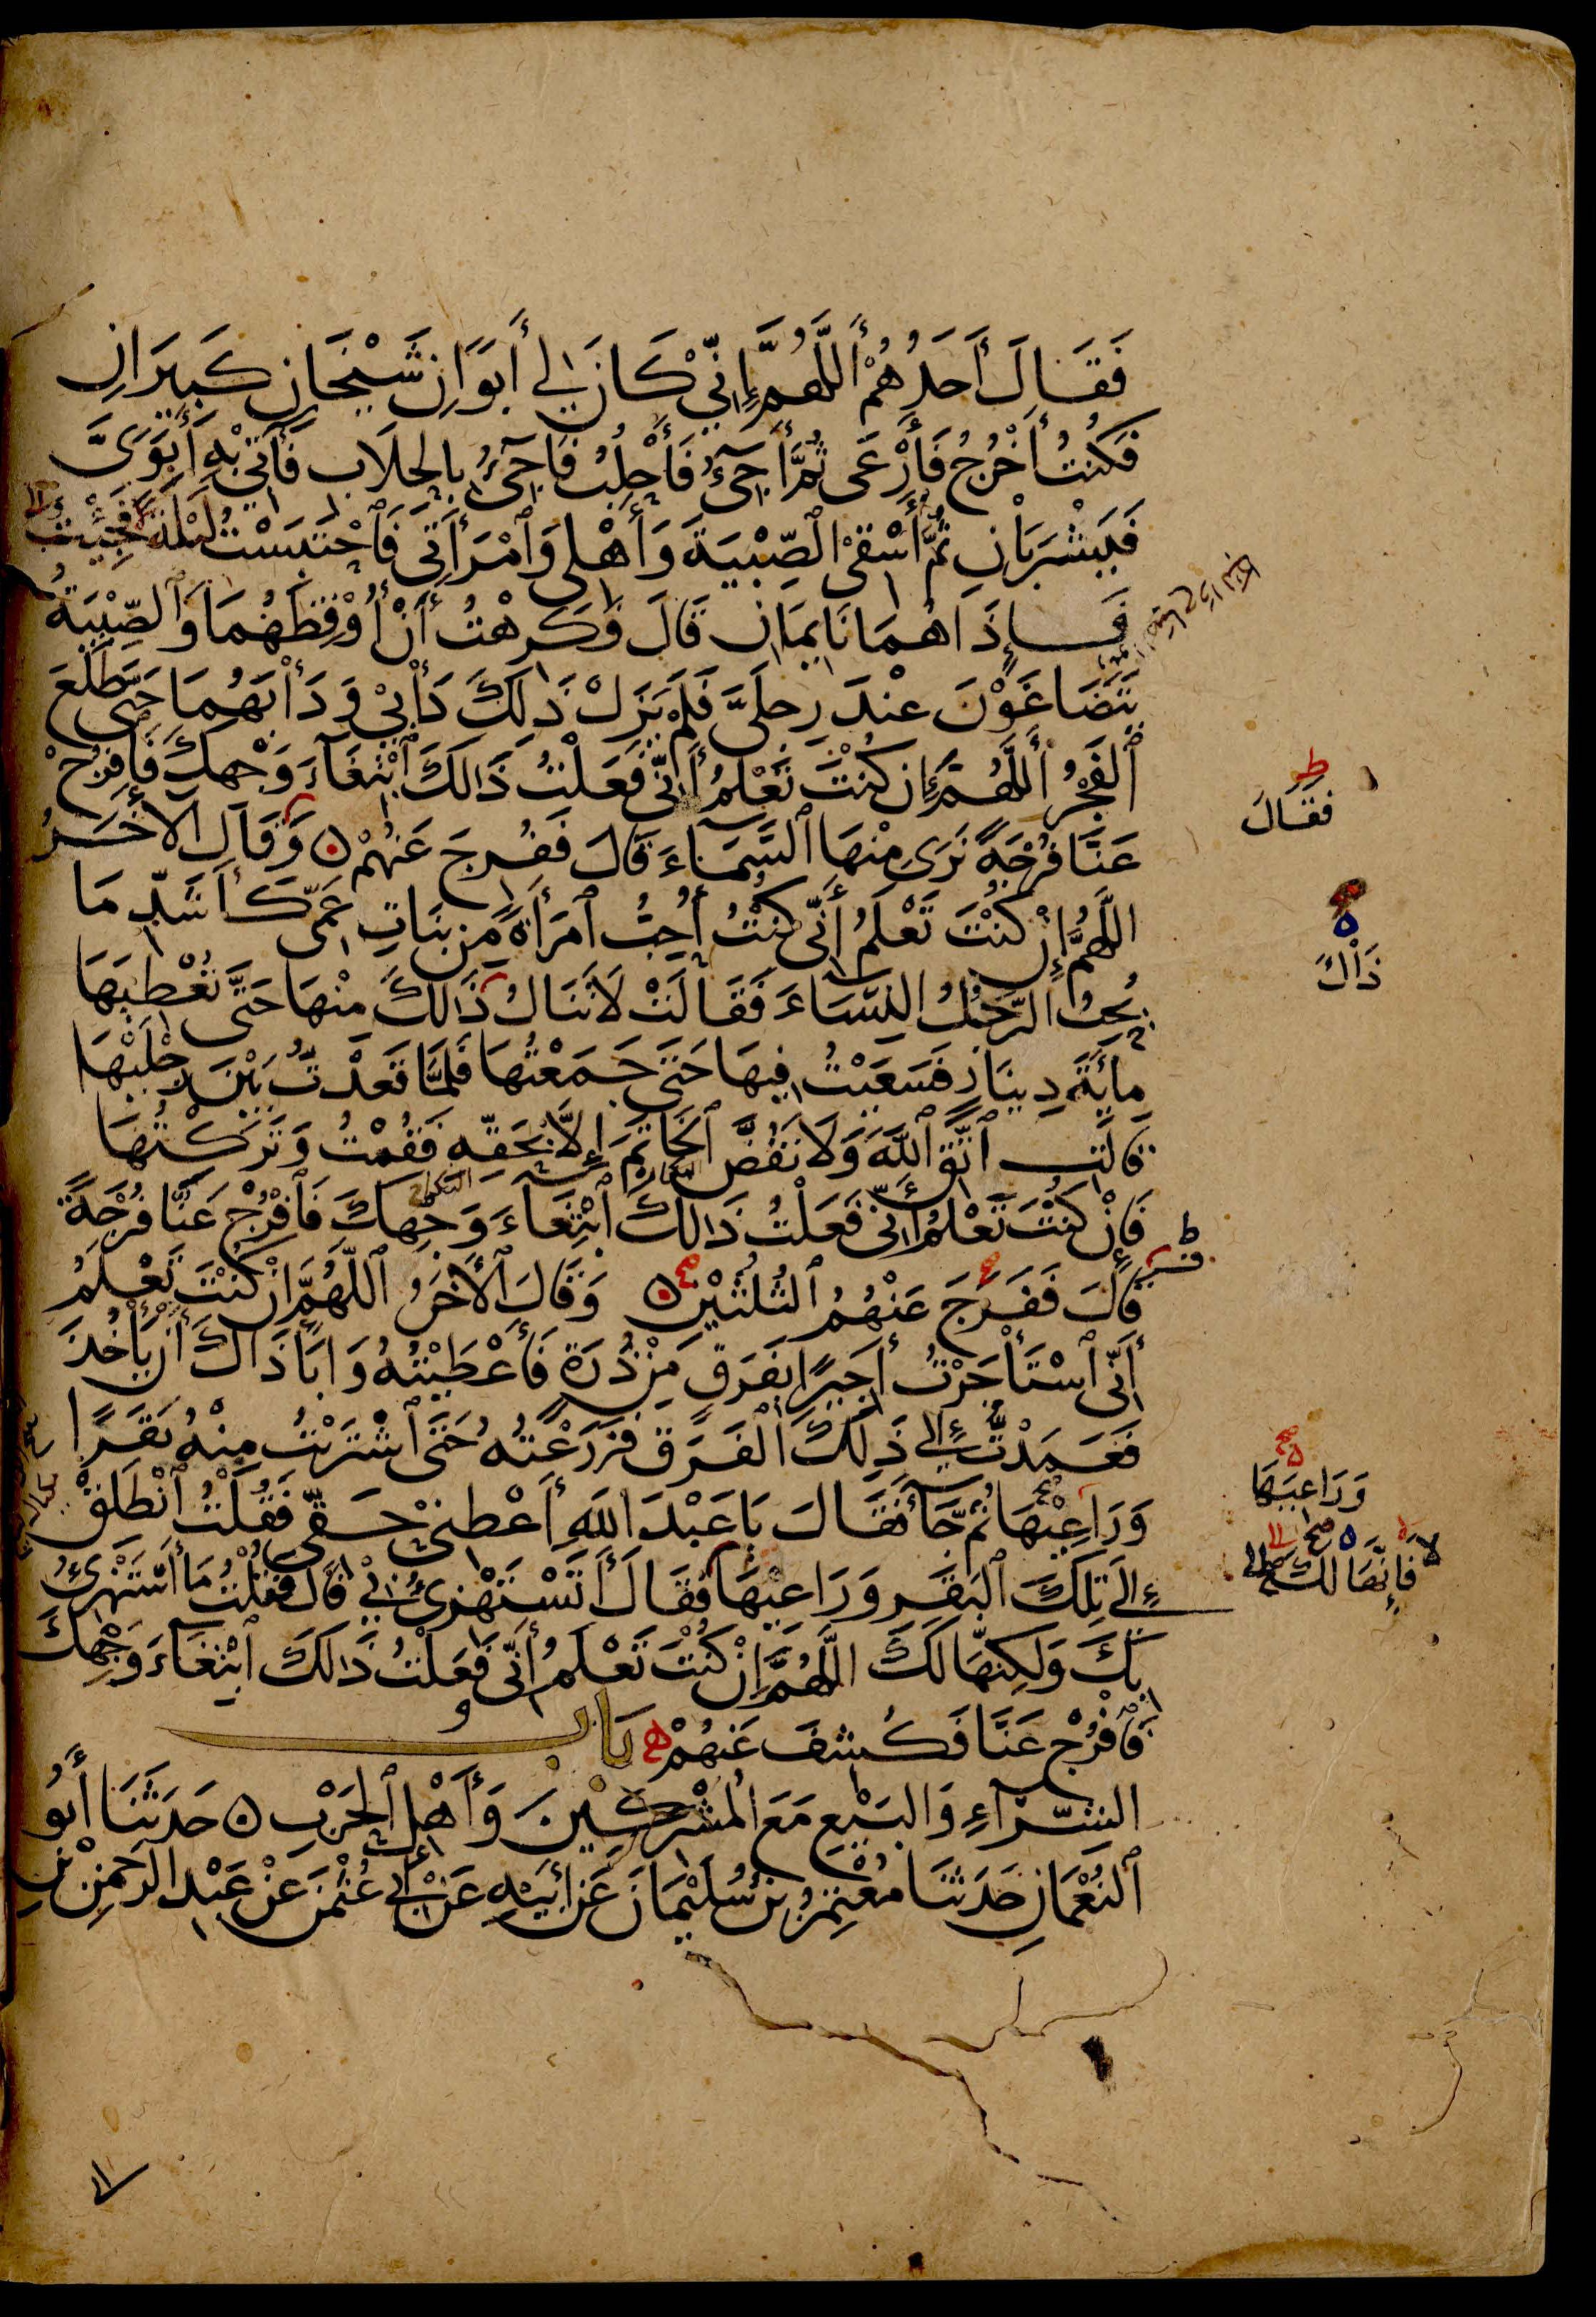 فَقَالَ أَحَدُهُمْ أَللَّهُمَّ إِنِّي كَانَ لِي أَبَوَانِ شَيْخَانِ كَبِيرَانِ
فَكُنْتُ أَخْرُجُ فَأَرْعَى ثُمَّ أَجِيءُ فَأَحْلِبُ فَأَجِيءُ بِالْحِلَابِ فَآتِي بِهِ أَبَوَيَّ
فَيَشْرَبَانِ ثُمَّ أَسْقِي ٱلصِّبْيَةَ وَأَهْلِي وَٱمْرَأَتِي فَٱحْتَبَسْتُ لَيْلَةً فَجِئْتُ
فَإِذَا هُمَا نَايِمَانِ قَالَ فَكَرِهْتُ أَنْ أُوقِظَهُمَا وَٱلصِّبْيَةُ
يَتَضَاغَوْنَ عِنْدَ رِجْلَيَّ فَلَمْ يَزَلْ ذَٰلِكَ دَأْبِي وَدَأْبَهُمَا حَتَّى طَلَعَ
ٱلْفَجْرُ أَللَّهُمَّ إِنْ كُنْتَ تَعْلَمُ أَنِّي فَعَلْتُ ذَالِكَ ٱبْتِغَآءَ وَجْهِكَ فَٱفْرُجْ
عَنَّا فُرْجَةً نَرَى مِنْهَا ٱلسَّمَآءَ قَالَ فَفُرِجَ عَنْهُمْ ۞ وَقَالَ ٱلْآخَرُ
اللَّهُمَّ إِنْ كُنْتَ تَعْلَمُ أَنِّي كُنْتُ أُحِبُّ ٱمْرَأَةً مِنْ بَنَاتِ عَمِّي كَأَشَدِّ مَا
يُحِبُّ الرَّجُلُ النِّسَاءَ فَقَالَتْ لَا تَنَالُ ذَالِكَ مِنْهَا حَتَّى تُعْطِيَهَا
مِايَةَ دِينَارٍ فَسَعَيْتُ فِيهَا حَتَّى جَمَعْتُهَا فَلَمَّا قَعَدْتُ بَيْنَ رِجْلَيْهَا
قَالَتِ ٱتَّقِ ٱللَّهَ وَلَا تَفُضَّ ٱلْخَاتَمَ إِلَّا بِحَقِّهِ فَقُمْتُ وَتَرَكْتُهَا
فَإِنْ كُنْتَ تَعْلَمُ أَنِّي فَعَلْتُ ذَالِكَ ٱبْتِغَآءَ وَجْهِكَ فَٱفْرُجْ عَنَّا فُرْجَةً
قَالَ فَفَرَجَ عَنْهُمُ ٱلثُّلُثَيْنِ ۞ وَقَالَ ٱلْآخَرُ ٱللَّهُمَّ إِنْ كُنْتَ تَعْلَمُ
أَنِّي ٱسْتَأْجَرْتُ أَجِيرًا بِفَرَقٍ مِنْ ذُرَةٍ فَأَعْطَيْتُهُ وَأَبَى ذَاكَ أَنْ يَأْخُذَ
فَعَمَدْتُ إِلَى ذَٰلِكَ ٱلْفَرَقِ فَزَرَعْتُهُ حَتَّى ٱشْتَرَيْتُ مِنْهُ بَقَرًا
وَرَاعِيْهَا ثُمَّ جَآءَ فَقَالَ يَا عَبْدَ اللَّهِ أَعْطِنِي حَقِّي فَقُلْتُ ٱنْطَلِقْ
إِلَى تِلْكَ ٱلْبَقَرِ وَرَاعِيْهَا فَقَالَ أَتَسْتَهْزِئُ بِي قَالَ فَقُلْتُ مَا أَسْتَهْزِئُ
بِكَ وَلَكِنَّهَا لَكَ اللَّهُمَّ إِنْ كُنْتَ تَعْلَمُ أَنِّي فَعَلْتُ ذَالِكَ ٱبْتِغَآءَ وَجْهِكَ
فَٱفْرُجْ عَنَّا فَكُشِفَ عَنْهُمْ ه بَابُ
الشِّرَآءِ وَالْبَيْعِ مَعَ الْمُشْرِكِيْنَ وَأَهْلِ ٱلْحَرْبِ ۞ حَدَّثَنَا أَبُو
ٱلنُّعْمَانِ حَدَّثَنَا مُعْتَمِرُ بْنُ سُلَيْمَانَ عَنْ أَبِيْهِ عَنْ أَبِي عُثْمَنَ عَنْ عَبْدِ الرَّحْمٰنِ بْنِ
فَقَالَ
ذَاكَ
وَرَاعِيَهَا
فَإِنَّهَا لَكَ